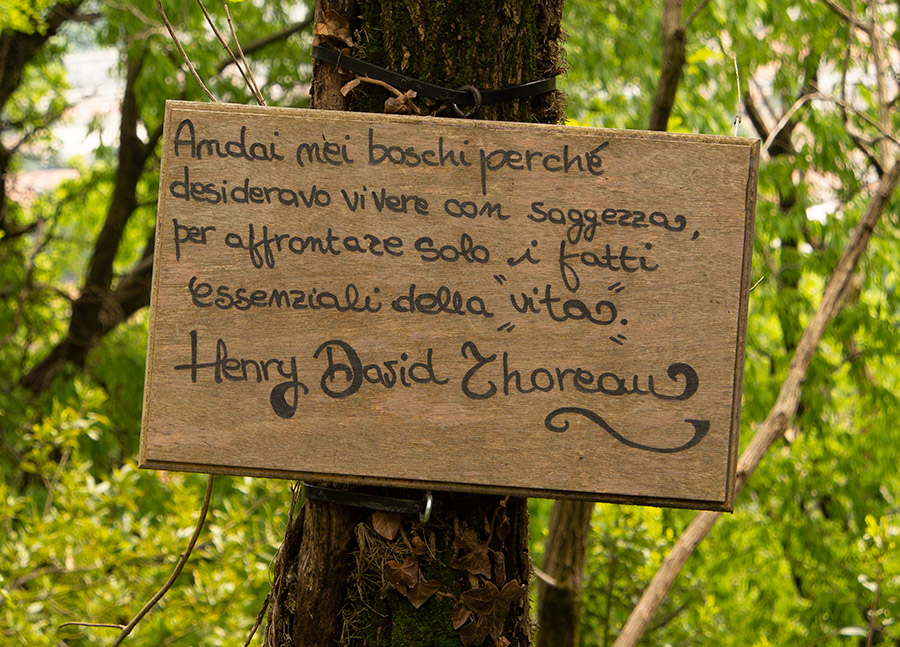 Andai nei boschi perché
desideravo vivere con saggezza,
per affrontare solo i fatti
"essenziali della "vita".
Henry David Thoreau